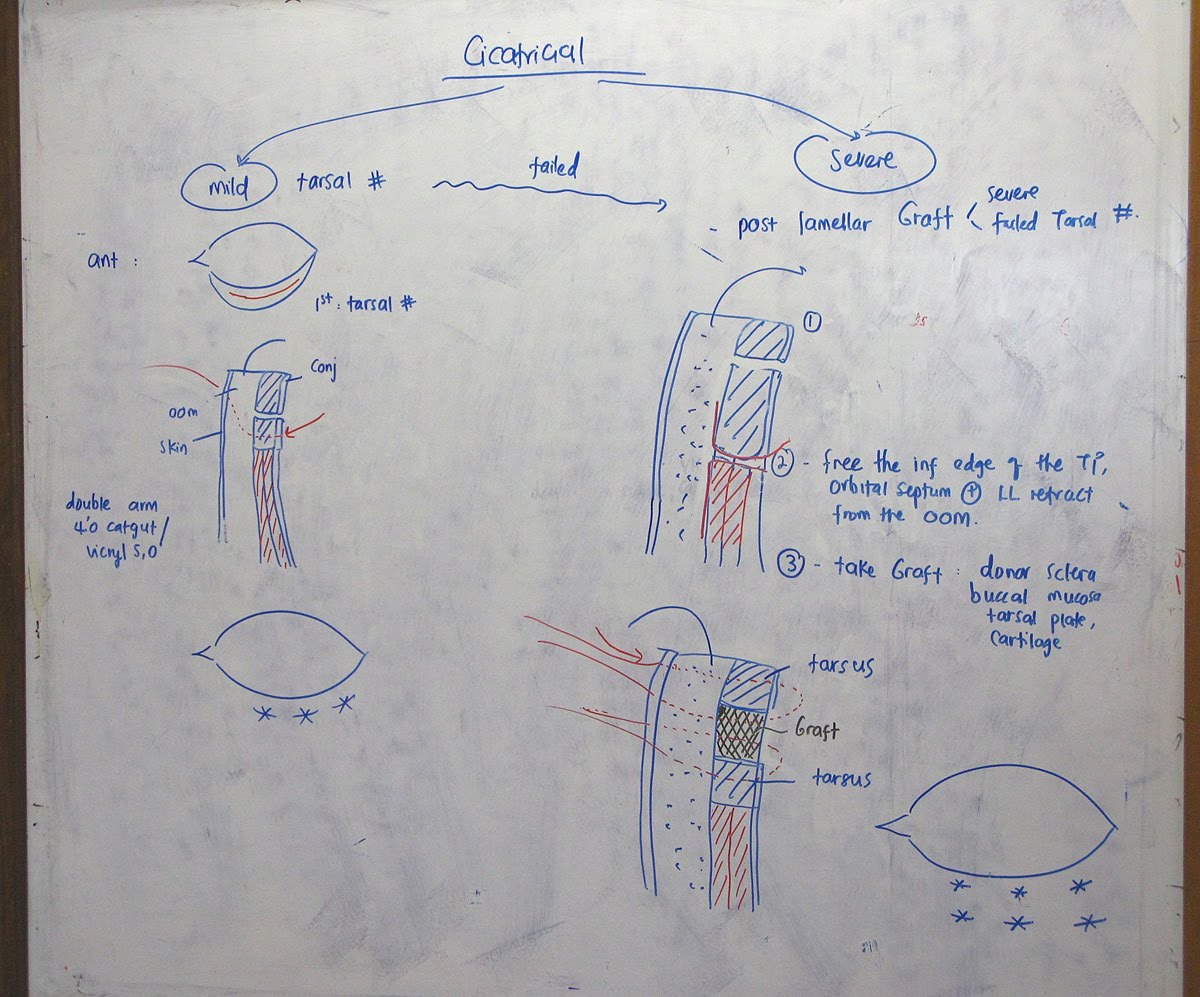 Cicatricial
mild
tarsal #
failed
severe
- post lamellar Graft < severe
failed Tarsal #.
ant :
1st : tarsal #
①
conj
oom
skin
double arm
4'0 catgut/
vicryl 5,0
② - free the inf edge of the TP,
orbital septum ⊕ LL retract
from the OOM.
③ - take Graft : donor sclera
buccal mucosa
tarsal plate,
cartilage
tarsus
Graft
tarsus